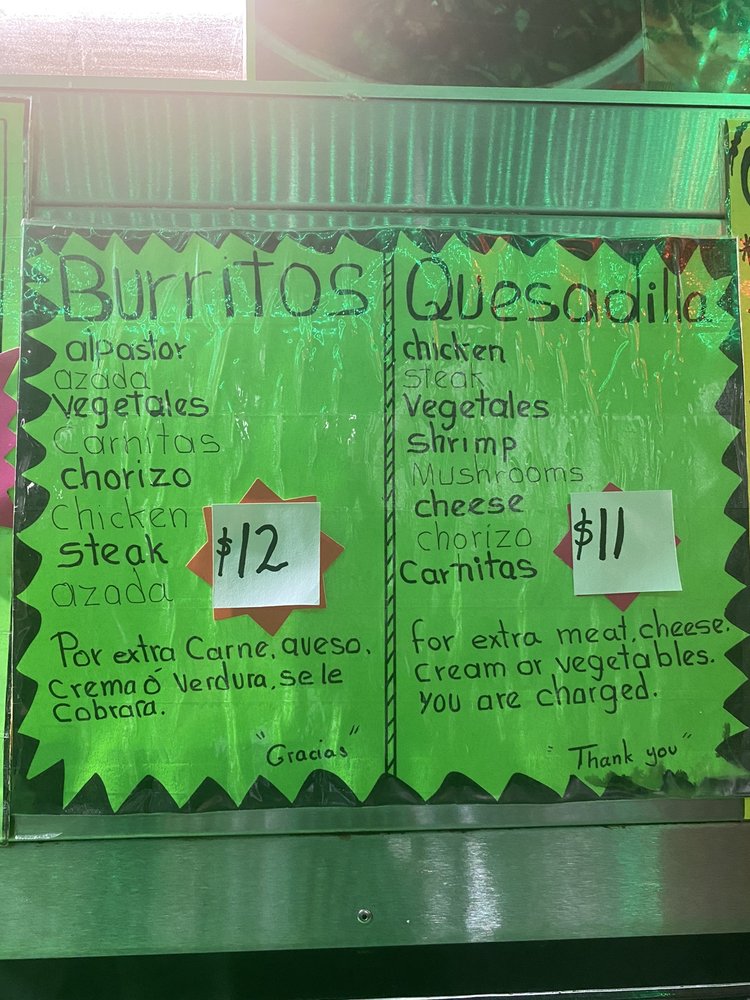 Burritos
alPastor
azada
Vegetales
Carnitas
chorizo
Chicken
steak
azada
$12
Por extra Carne, queso,
Crema ó Verdura, se le
Cobrara.
"Gracias"
Quesadilla
chicken
steak
Vegetales
shrimp
Mushrooms
cheese
chorizo
Carnitas
$11
for extra meat, cheese,
Cream or vegetables.
you are charged.
"Thank you"